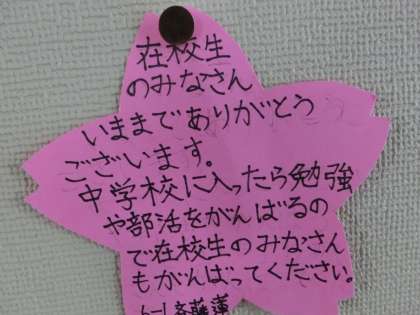 在校生
のみなさん
いままでありがとう
ございます。
中学校に入ったら勉強
や部活をがんばるの
で在校生のみなさん
もがんばってください。
斉藤蓮